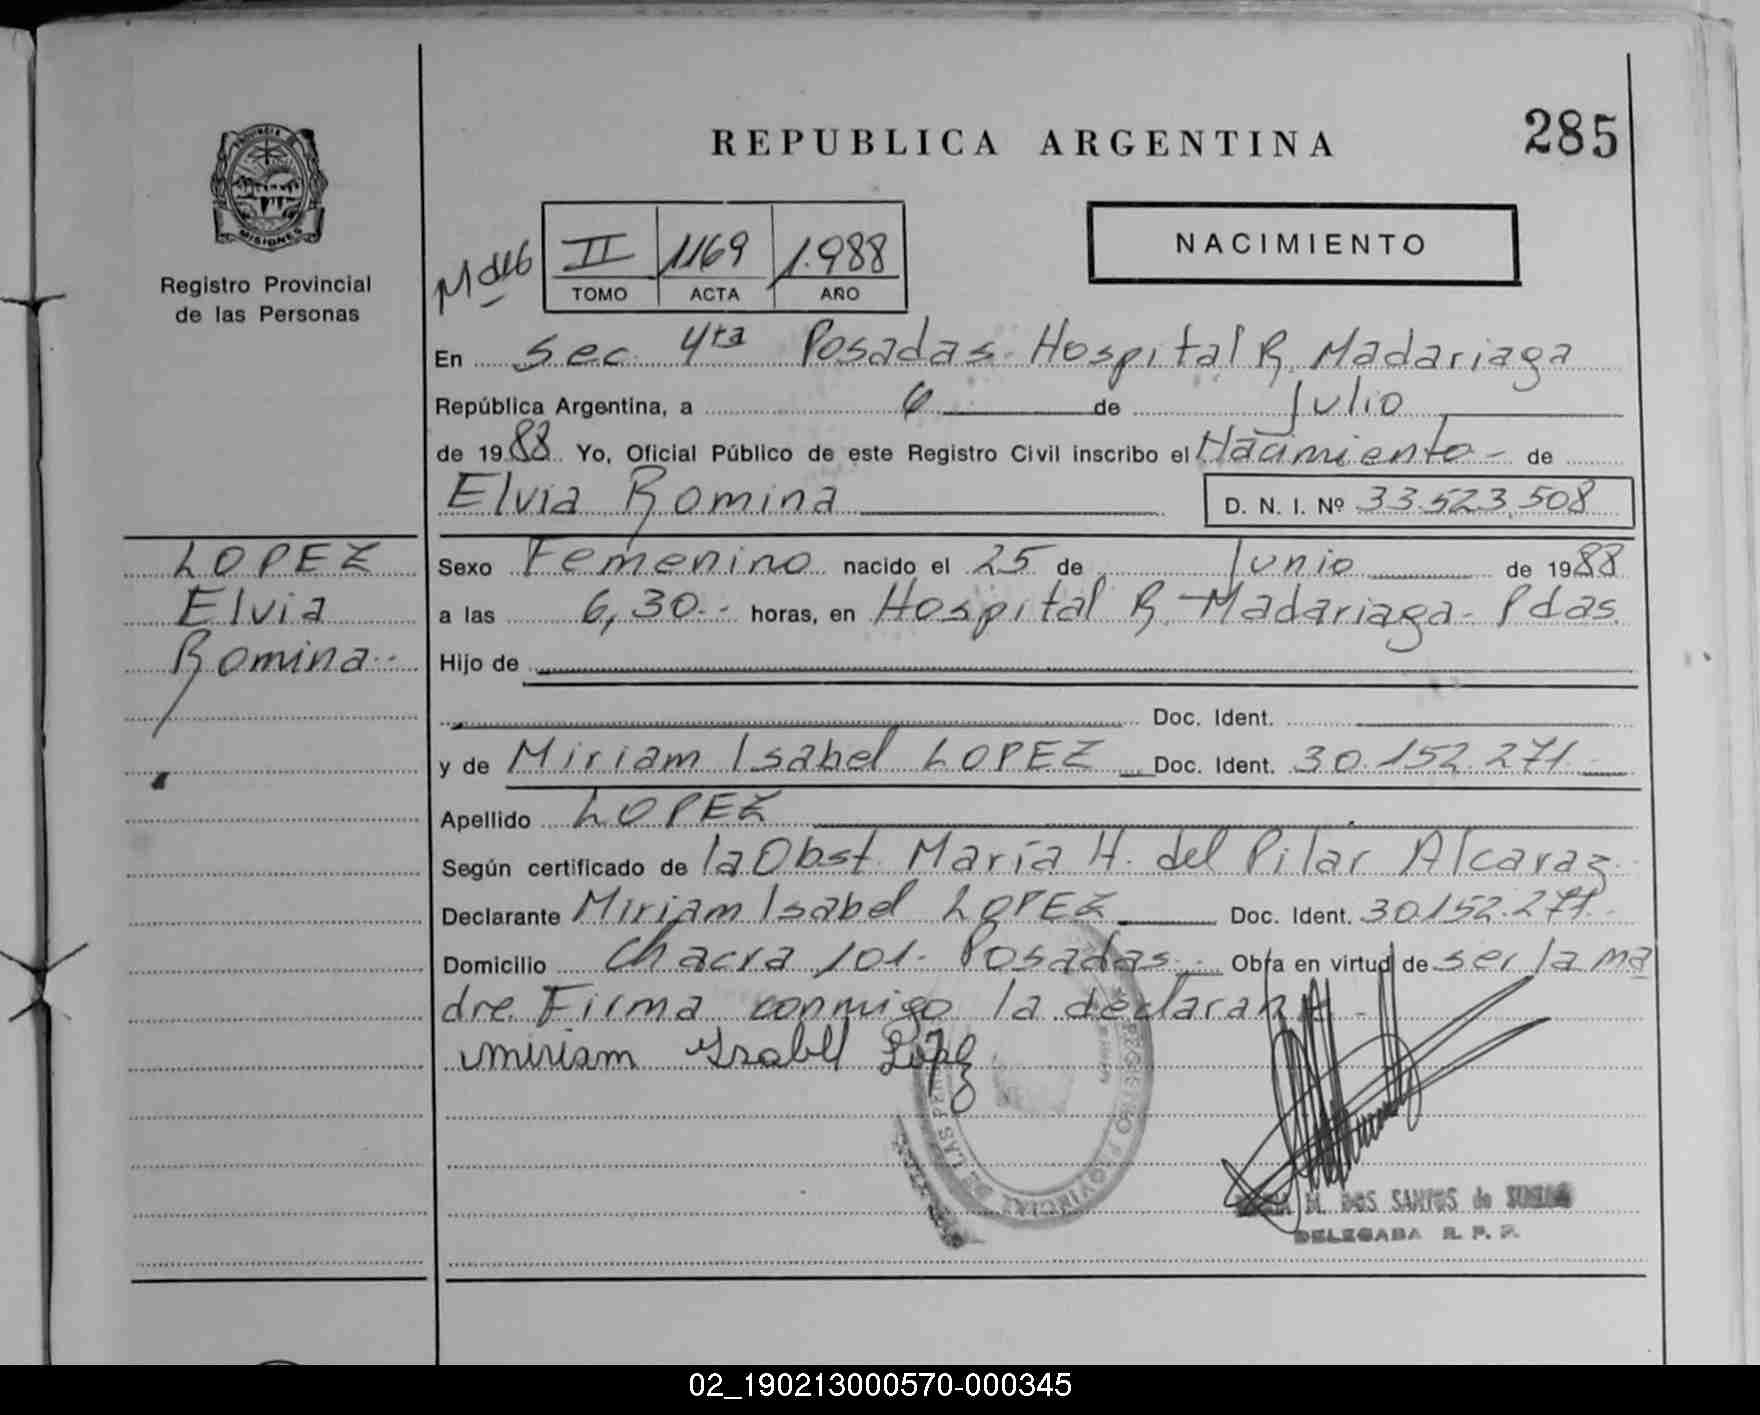 REPUBLICA ARGENTINA
285
PROVINCIA DE
MISIONES
Registro Provincial
de las Personas
NACIMIENTO
II 1169 1.988
TOMO ACTA AÑO
En Sec. 4ta Posadas. Hospital R. Madariaga
República Argentina, a 6 de Julio
de 1988. Yo, Oficial Público de este Registro Civil inscribo el Nacimiento - de
Elvia Romina
D. N. I. Nº 33.523.508
LOPEZ
Elvia
Romina.-
Sexo Femenino nacido el 25 de Junio de 1988
a las 6,30.- horas, en Hospital R. Madariaga- Pdas.
Hijo de
Doc. Ident.
y de Miriam Isabel LOPEZ Doc. Ident. 30.152.271.
Apellido LOPEZ
Según certificado de la Obst. María H. del Pilar Alcaraz.
Declarante Miriam Isabel LOPEZ Doc. Ident. 30.152.271.-
Domicilio Chacra 101.- Posadas.- Obra en virtud de ser la ma
dre. Firma conmigo la declarante.-
miriam Isabel Lopez
REGISTRO PROVINCIAL DE LAS
M. DOS SANTOS de
DELEGADA R. P. P.
02_190213000570-000345